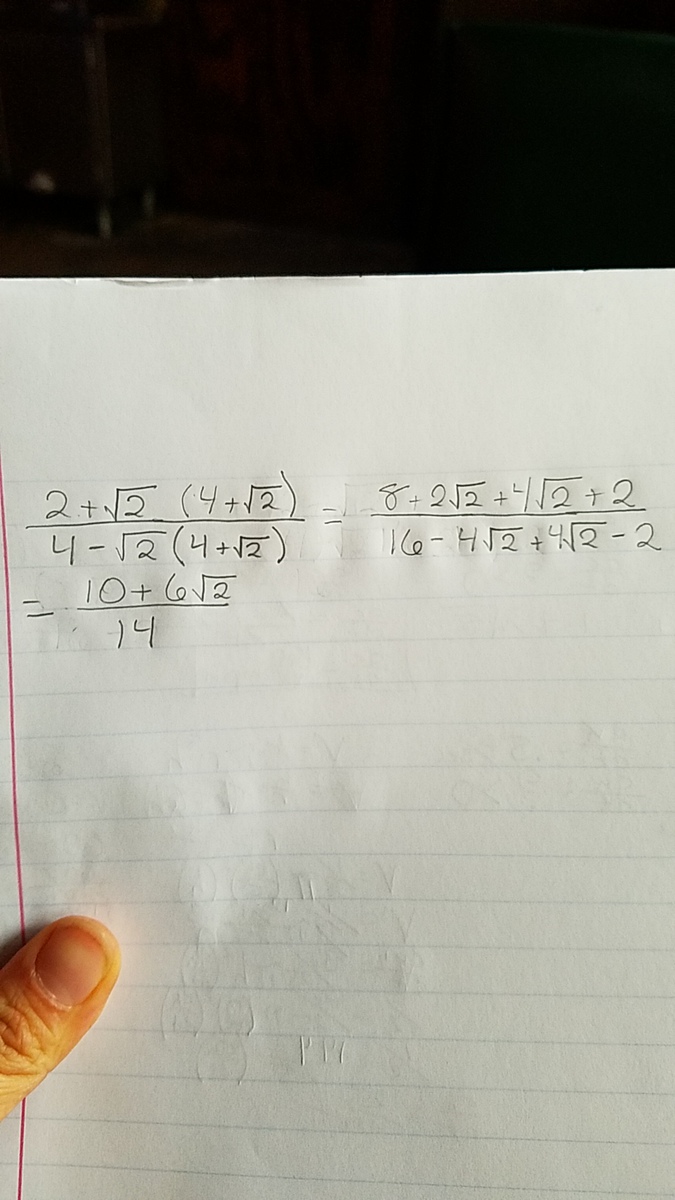 2+√2 (4+√2) / 4-√2(4+√2) = 8+2√2+4√2+2 / 16-4√2+4√2-2
= 10+6√2 / 14